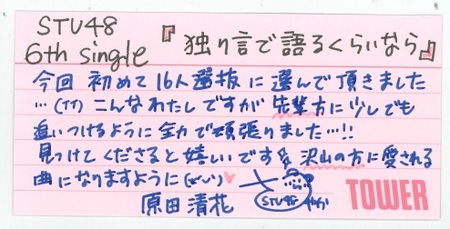 STU48
6th single 『独り言で語るくらいなら』
今回 初めて 16人選抜 に 選んで 頂きました
こんなわたしですが 先輩方に少しでも
追いつけるように 全力で頑張りました…!!
見つけてくださると嬉しいです 沢山の方に愛される
曲になりますように
原田 清花
STU48
TOWER